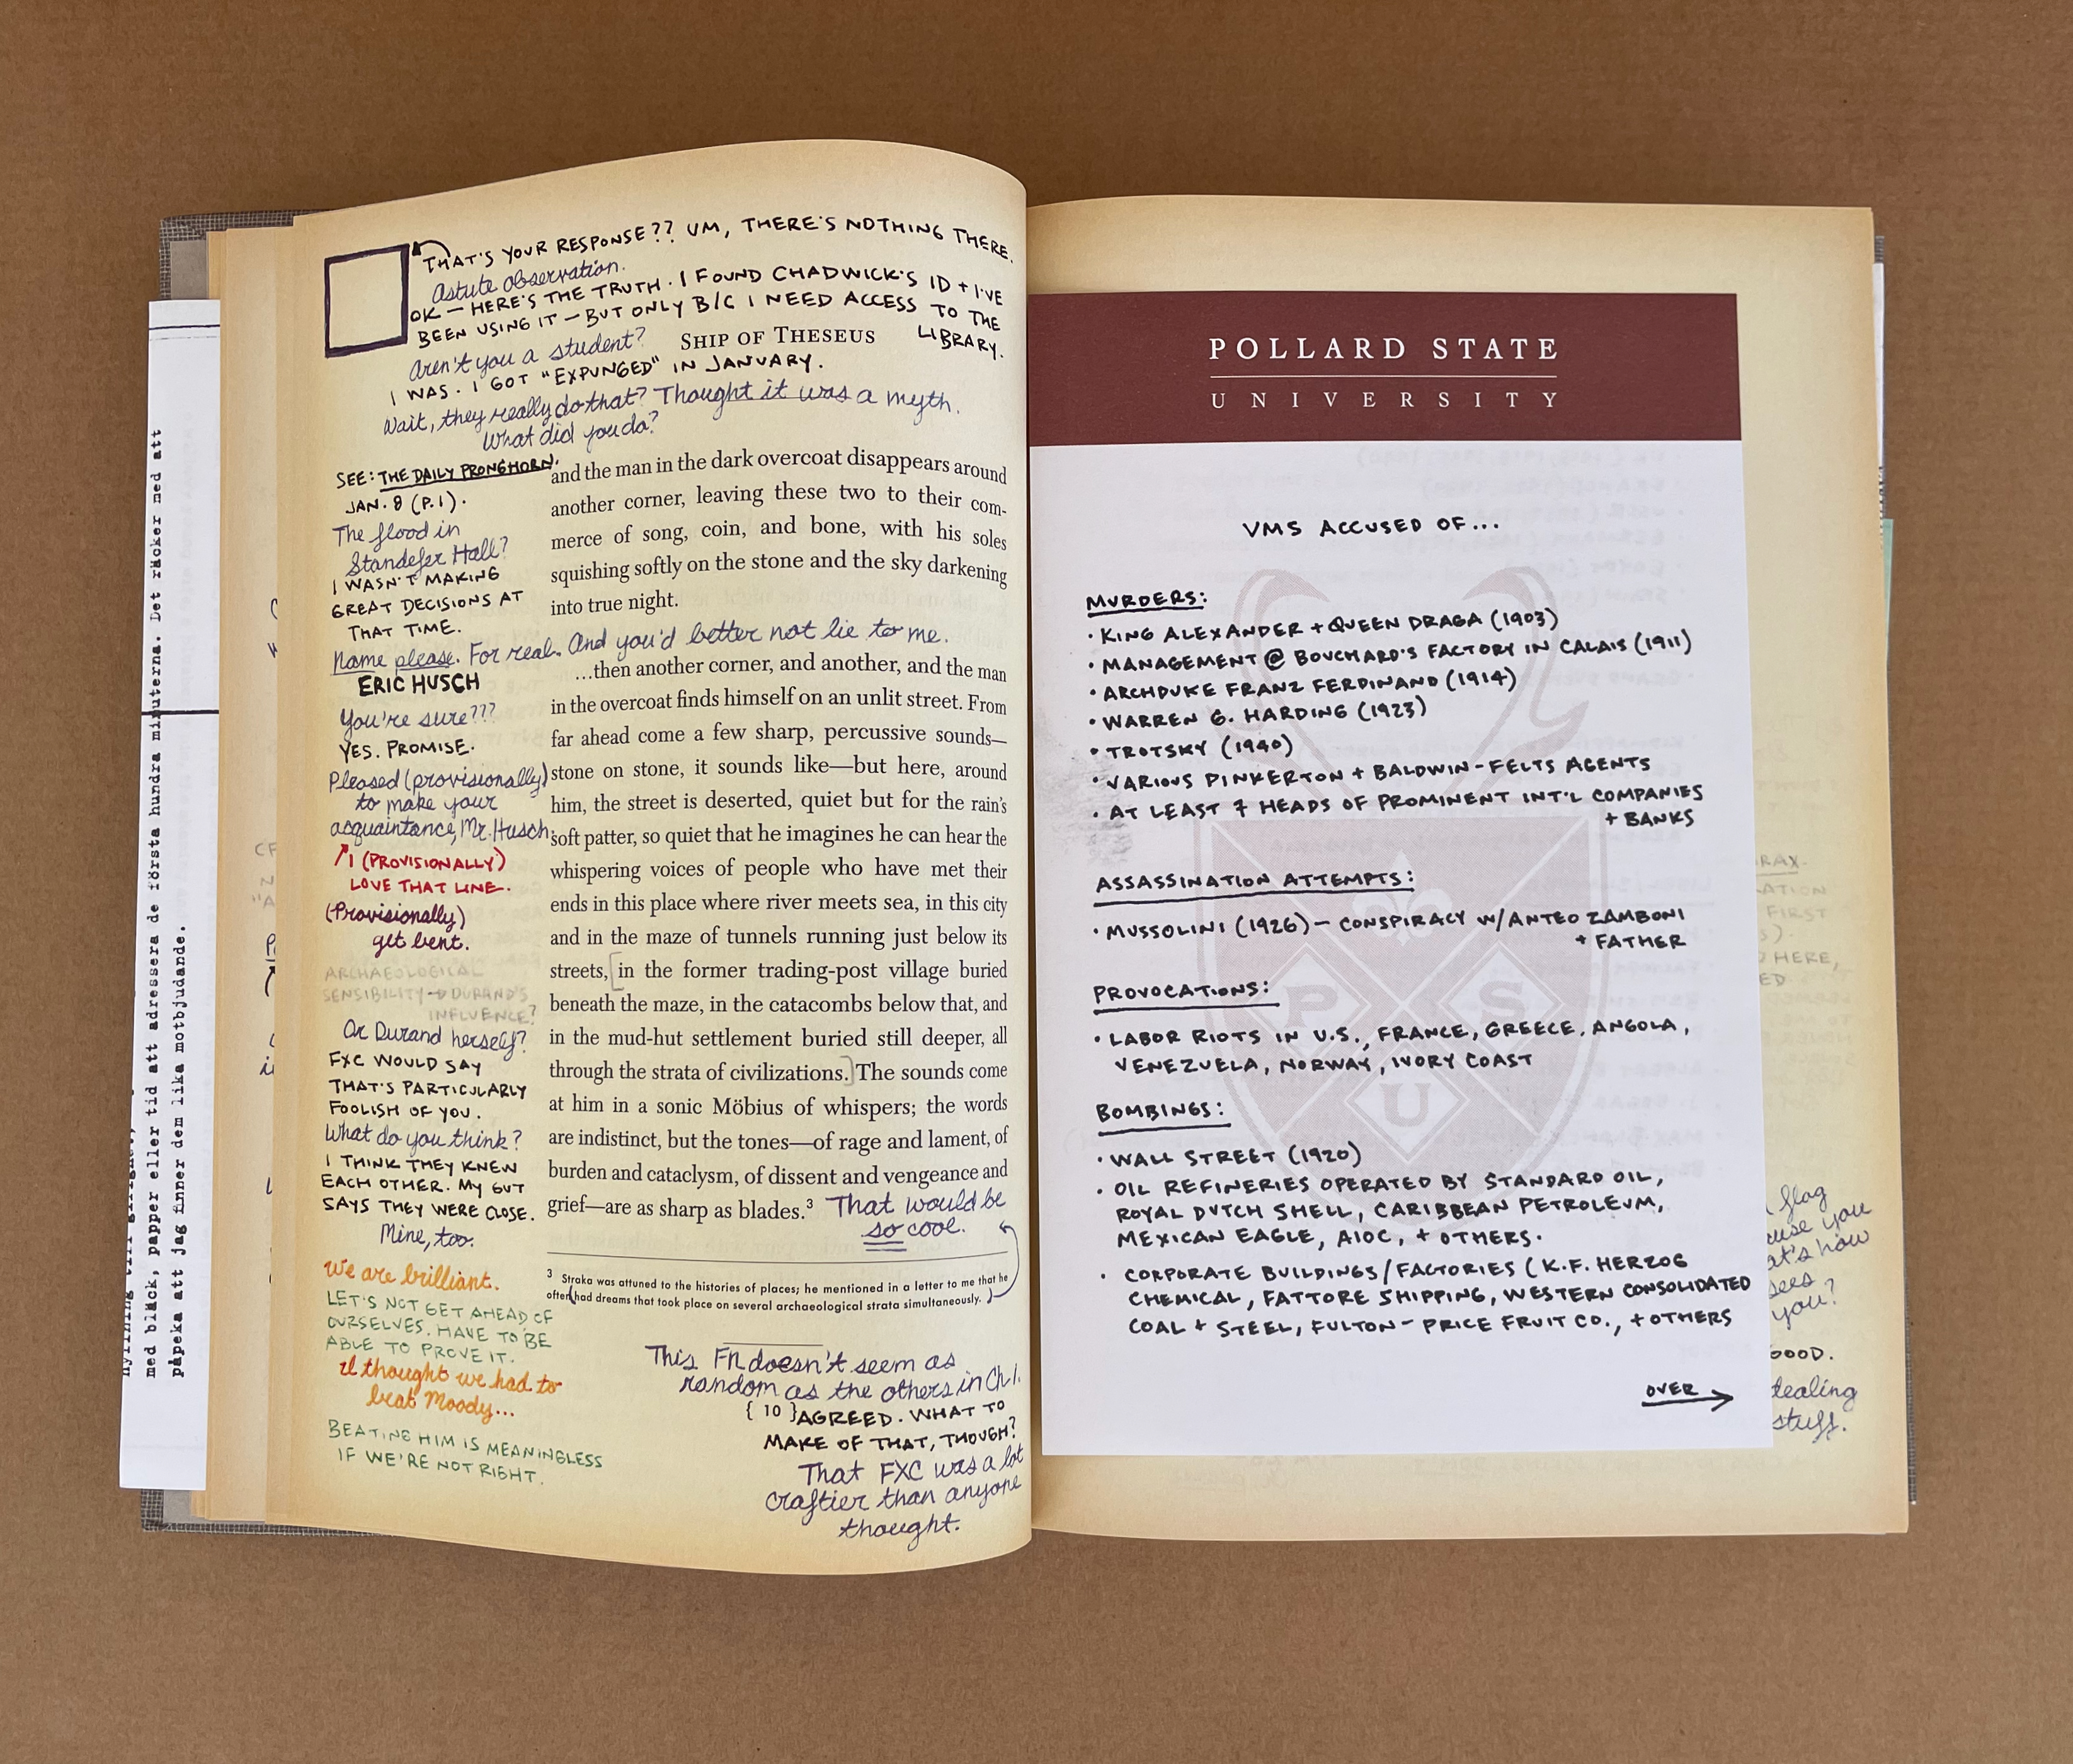 THAT'S YOUR RESPONSE?? UM, THERE'S NOTHING THERE.
Astute observation.
OK — HERE'S THE TRUTH. I FOUND CHADWICK'S ID + I'VE
BEEN USING IT — BUT ONLY B/C I NEED ACCESS TO THE
LIBRARY.
SHIP OF THESEUS
Aren't you a student?
I WAS. I GOT "EXPUNGED" IN JANUARY.
Wait, they really do that? Thought it was a myth.
What did you do?
SEE: THE DAILY PRONGHORN,
JAN. 8 (P.1).
The flood in
Standefer Hall?
I WASN'T MAKING
GREAT DECISIONS AT
THAT TIME.
and the man in the dark overcoat disappears around
another corner, leaving these two to their com-
merce of song, coin, and bone, with his soles
squishing softly on the stone and the sky darkening
into true night.
Name please. For real. And you'd better not lie to me.
ERIC HUSCH
You're sure???
YES. PROMISE.
Pleased (provisionally)
to make your
acquaintance, Mr. Husch.
I (PROVISIONALLY)
LOVE THAT LINE.
(Provisionally)
get bent.
ARCHAEOLOGICAL
SENSIBILITY → DURAND'S
INFLUENCE?
Or Durand herself?
FXC WOULD SAY
THAT'S PARTICULARLY
FOOLISH OF YOU.
What do you think?
I THINK THEY KNEW
EACH OTHER. MY GUT
SAYS THEY WERE CLOSE.
Mine, too.
We are brilliant.
LET'S NOT GET AHEAD OF
OURSELVES. HAVE TO BE
ABLE TO PROVE IT.
I thought we had to
beat Moody...
BEATING HIM IS MEANINGLESS
IF WE'RE NOT RIGHT.
...then another corner, and another, and the man
in the overcoat finds himself on an unlit street. From
far ahead come a few sharp, percussive sounds—
stone on stone, it sounds like—but here, around
him, the street is deserted, quiet but for the rain's
soft patter, so quiet that he imagines he can hear the
whispering voices of people who have met their
ends in this place where river meets sea, in this city
and in the maze of tunnels running just below its
streets, [in the former trading-post village buried
beneath the maze, in the catacombs below that, and
in the mud-hut settlement buried still deeper, all
through the strata of civilizations.] The sounds come
at him in a sonic Möbius of whispers; the words
are indistinct, but the tones—of rage and lament, of
burden and cataclysm, of dissent and vengeance and
grief—are as sharp as blades.³
That would be
so cool.
3 Straka was attuned to the histories of places; he mentioned in a letter to me that he
often (had dreams that took place on several archaeological strata simultaneously.)
This FN doesn't seem as
random as the others in Ch 1.
{ 10 }
AGREED. WHAT TO
MAKE OF THAT, THOUGH?
That FXC was a lot
craftier than anyone
thought.
med bläck, papper eller tid att adressera de första hundra minuterna. Det räcker med att
påpeka att jag finner dem lika motbjudande.
POLLARD STATE
UNIVERSITY
VMS ACCUSED OF...
MURDERS:
• KING ALEXANDER + QUEEN DRAGA (1903)
• MANAGEMENT @ BOUCHARD'S FACTORY IN CALAIS (1911)
• ARCHDUKE FRANZ FERDINAND (1914)
• WARREN G. HARDING (1923)
• TROTSKY (1940)
• VARIOUS PINKERTON + BALDWIN-FELTS AGENTS
• AT LEAST 7 HEADS OF PROMINENT INT'L COMPANIES
+ BANKS
ASSASSINATION ATTEMPTS:
• MUSSOLINI (1926) — CONSPIRACY W/ANTEO ZAMBONI
+ FATHER
PROVOCATIONS:
• LABOR RIOTS IN U.S., FRANCE, GREECE, ANGOLA,
VENEZUELA, NORWAY, IVORY COAST
BOMBINGS:
• WALL STREET (1920)
• OIL REFINERIES OPERATED BY STANDARD OIL,
ROYAL DUTCH SHELL, CARIBBEAN PETROLEUM,
MEXICAN EAGLE, AIOC, + OTHERS.
• CORPORATE BUILDINGS/FACTORIES (K.F. HERZOG
CHEMICAL, FATTORE SHIPPING, WESTERN CONSOLIDATED
COAL + STEEL, FULTON-PRICE FRUIT CO., + OTHERS
OVER →
P S
U
FIRST
HERE,
flag
you
how
sees
you?
GOOD.
stuff.